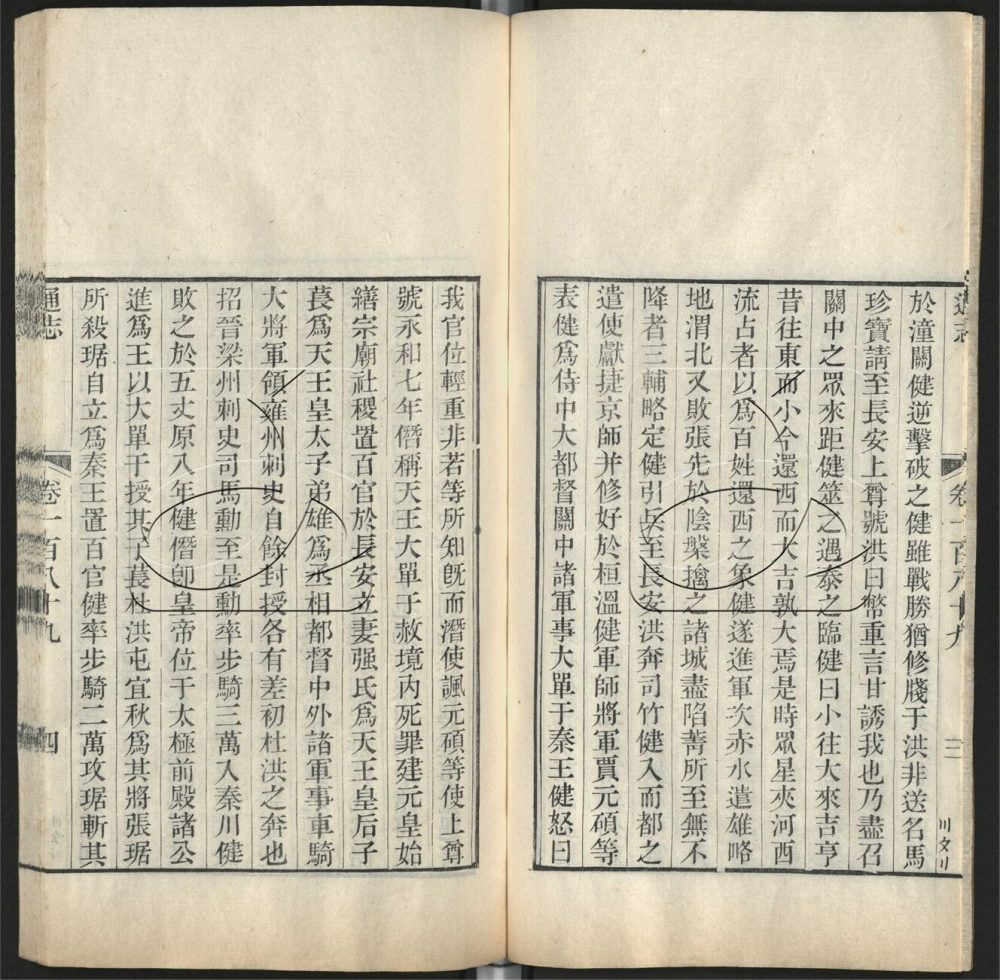 於潼關健逆擊破之健雖戰勝猶修牋于洪非送名馬
珍寶請至長安上尊號洪曰幣重言甘誘我也乃盡召
關中之眾來距健筮之遇泰之臨健曰小往大來吉亨
昔往東而小今還西而大吉孰大焉是時眾星夾河西
流占者以爲百姓還西之象健遂進軍次赤水遣雄略
地渭北又敗張先於陰槃擒之諸城盡陷菁所至無不
降者三輔略定健引兵至長安洪奔司竹健入而都之
遣使獻捷京師并修好於桓溫健軍師將軍賈元碩等
表健爲侍中大都督關中諸軍事大單于秦王健怒曰
我官位輕重非若等所知既而潛使諷元碩等使上尊
號永和七年僭稱天王大單于赦境內死罪建元皇始
繕宗廟社稷置百官於長安立妻强氏爲天王皇后子
萇爲天王皇太子弟雄爲丞相都督中外諸軍事車騎
大將軍領雍州刺史自餘封授各有差初杜洪之奔也
招晉梁州刺史司馬勳至是勳率步騎三萬入秦川健
敗之於五丈原八年健僭卽皇帝位于太極前殿諸公
進爲王以大單于授其子萇杜洪屯宜秋爲其將張琚
所殺琚自立爲秦王置百官健率步騎二萬攻琚斬其
通志
卷一百八十九
四